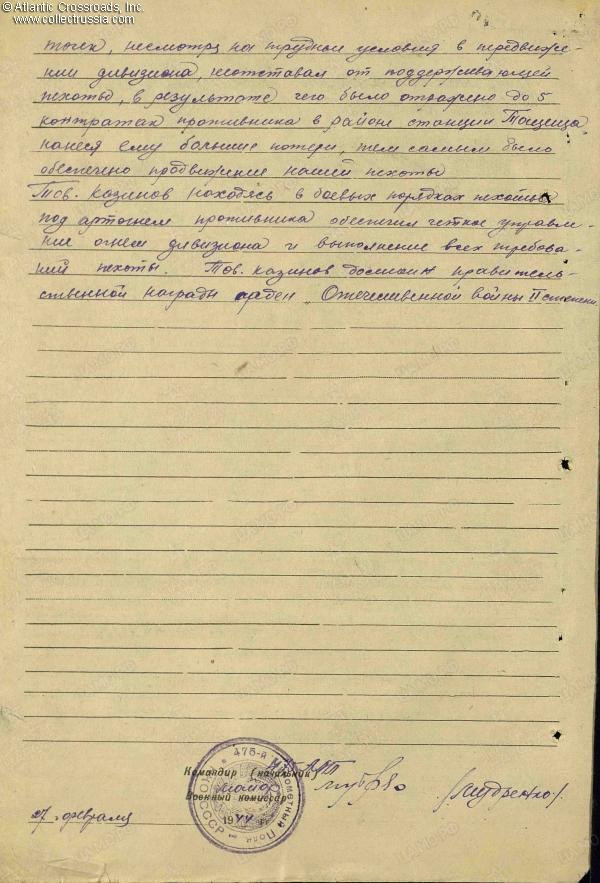 © Atlantic Crossroads, Inc.
www.collectrussia.com
точек, несмотря на трудные условия в передвиже-
нии дивизиона, неотставал от поддерживающей
пехоты, в результате чего было отражено до 5
контратак противника в районе станции Тощица,
нанеся ему большие потери, тем самым было
обеспечено продвижение нашей пехоты
Тов. Казинов находясь в боевых порядках пехоты
под артогнем противника обеспечил четкое управле-
ние огнем дивизиона и выполнение всех требова-
ний пехоты. Тов. Казинов достоин правитель-
ственной награды орден "Отечественной войны II степени
475-й Минометный Полк
СССР
Командир (начальник)
майор
Военный комиссар
27 февраля 1944 г.